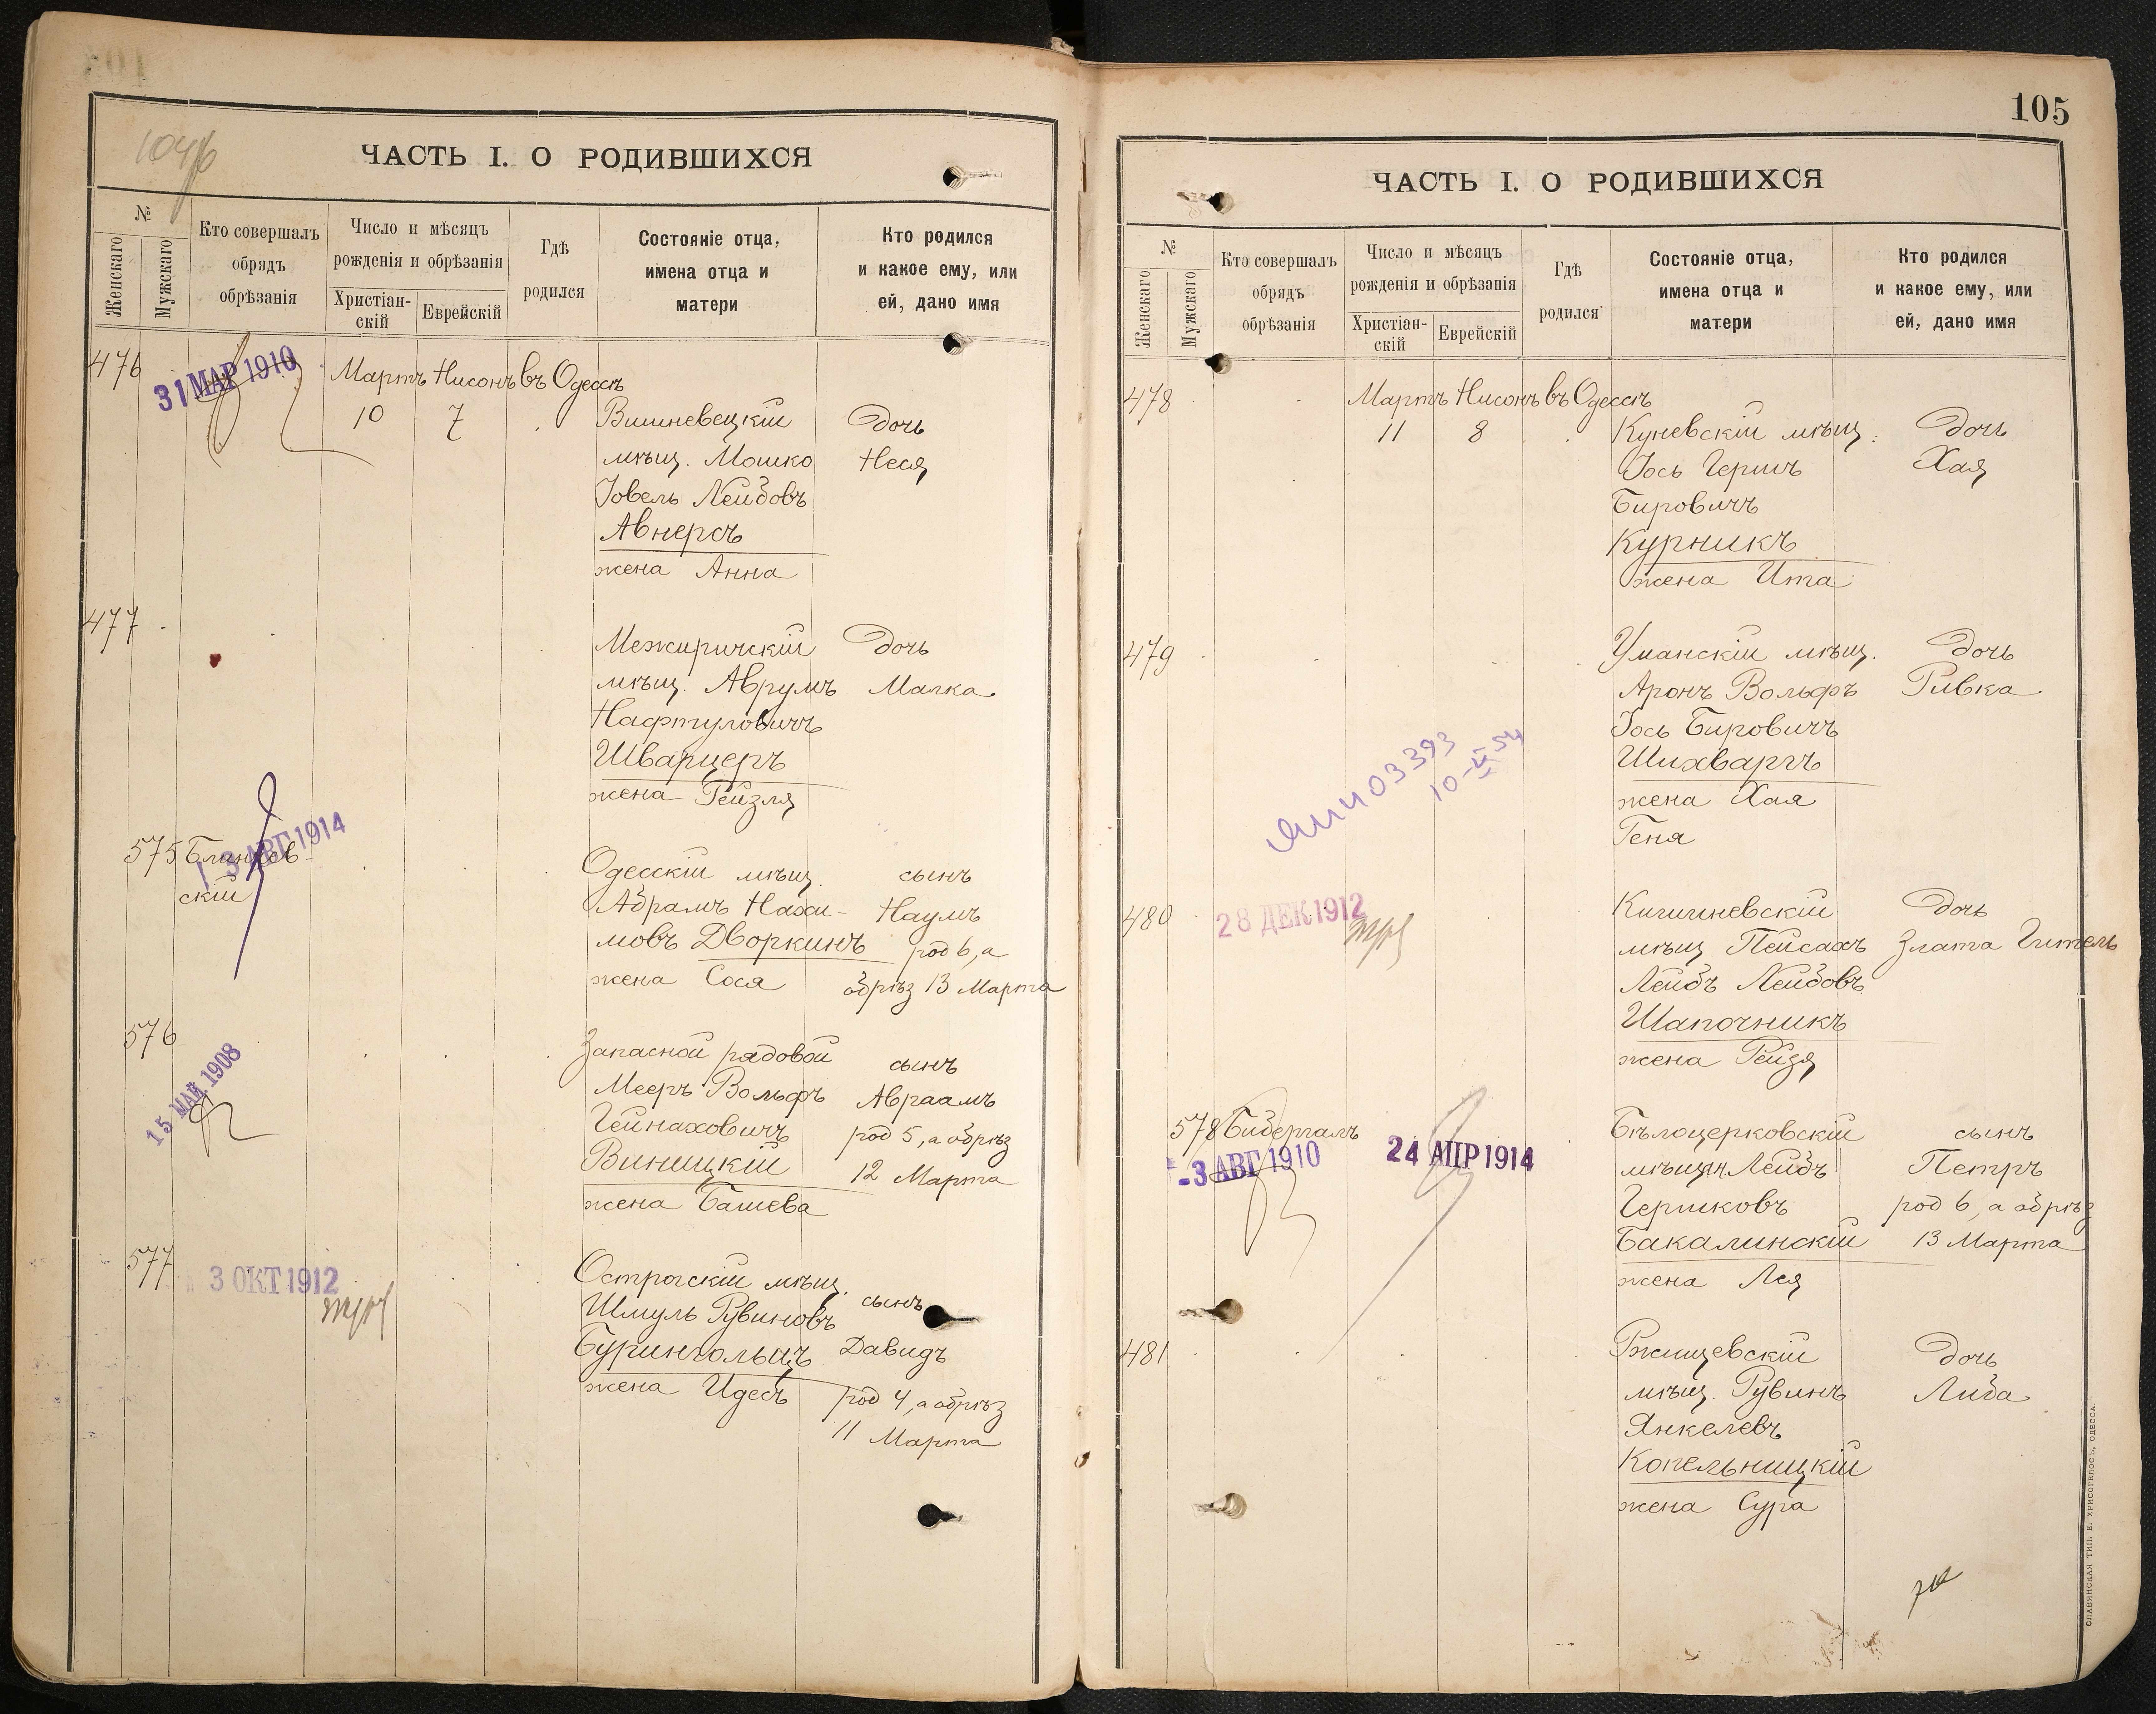 104б
ЧАСТЬ I. О РОДИВШИХСЯ
№
Женскаго
Мужскаго
Кто совершалъ
обрядъ
обрѣзанія
Число и мѣсяцъ
рожденія и обрѣзанія
Христіан-
скій
Еврейскій
Гдѣ
родился
Состояніе отца,
имена отца и
матери
Кто родился
и какое ему, или
ей, дано имя
476
31 МАР 1910
Мартъ Нисонъ въ Одессѣ
10 7
Вишневецкій Дочь
мѣщ. Мошко Неся
Іовель Лейбовъ
Авнересъ
жена Анна
477
Межиричскій Дочь
мѣщ. Аврумъ Малка
Нафтуловичъ
Шварцеръ
жена Рейзля
575 Блиндев-
скій
1 3 АВГ 1914
Одесскій мѣщ. сынъ
Абрамъ Нахи- Наумъ
мовъ Дворкинъ род 6, а
жена Сося обрѣз 13 Марта
576
15 МАЙ 1908
Запасной рядовой сынъ
Мееръ Вольфъ Авраамъ
Гейнаховичъ род 5, а обрѣз
Виницкій 12 Марта
жена Башева
577
3 ОКТ 1912
Острогскій мѣщ. сынъ
Шмуль Рувиновъ
Бурингольцъ Давидъ
жена Идесъ род 4, а обрѣз
11 Марта
105
ЧАСТЬ I. О РОДИВШИХСЯ
№
Женскаго
Мужскаго
Кто совершалъ
обрядъ
обрѣзанія
Число и мѣсяцъ
рожденія и обрѣзанія
Христіан-
скій
Еврейскій
Гдѣ
родился
Состояніе отца,
имена отца и
матери
Кто родился
и какое ему, или
ей, дано имя
478
Мартъ Нисонъ въ Одессѣ
11 8
Куневскій мѣщ. Дочь
Іось Гершъ Хая
Бировичъ
Курникъ
жена Ита
479
Уманскій мѣщ. Дочь
Аронъ Вольфъ Ривка
Іось Бировичъ
Шихваргъ
жена Хая
Геня
03393
10-VI-54
480
28 ДЕК 1912
Кишиневскій Дочь
мѣщ. Пейсахъ Злата Гитель
Лейбъ Лейбовъ
Шапочникъ
жена Рейзя
578 Бидергалъ
-3 АВГ 1910
24 АПР 1914
Бѣлоцерковскій сынъ
мѣщан Лейбъ Петръ
Гершковъ род 6, а обрѣз
Бакалинскій 13 Марта
жена Лея
481
Ржищевскій Дочь
мѣщ. Рувинъ Либа
Янкелевъ
Копельницкій
жена Сура
СЛАВЯНСКАЯ ТИП. Е. ХРИСОГЕЛОСЪ, ОДЕССА.